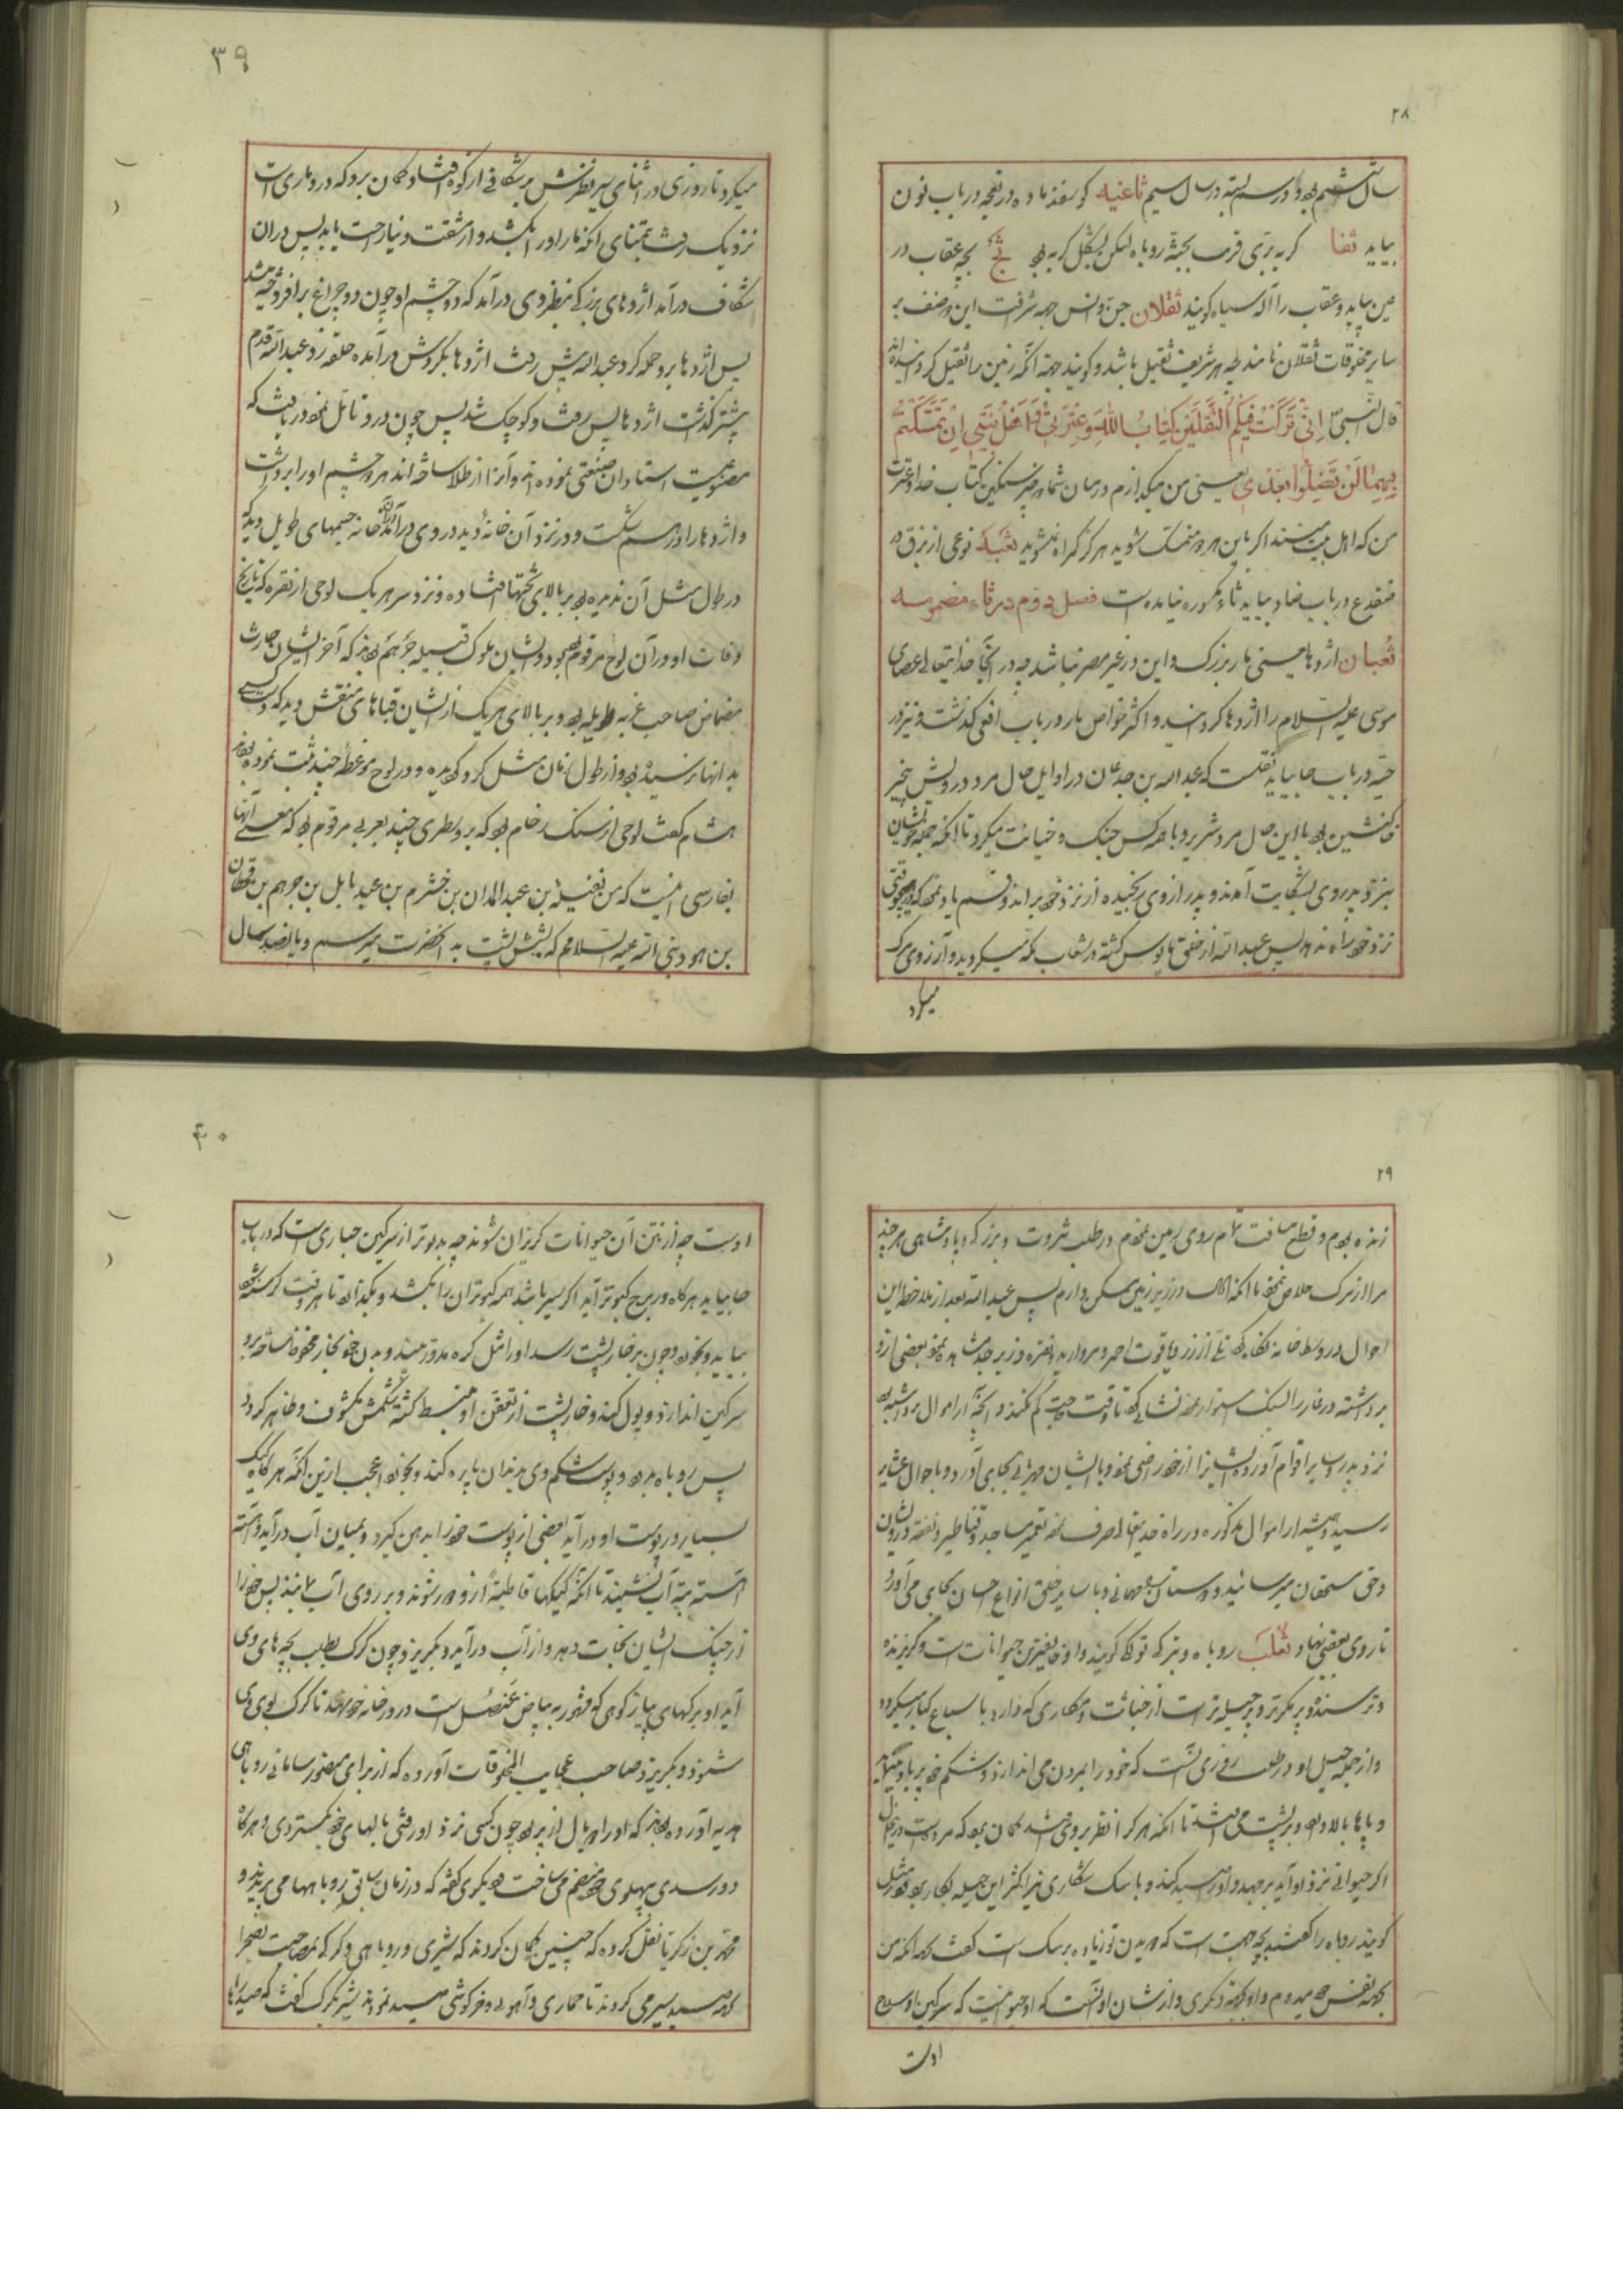 ۲۸
سال ششم بود و در سال سیم ثاغیه گوسفند ماده در نعجه در باب نون
بیاید ثفا گربه بری قریب بجثه روباه لیکن بشکل گربه بود ثج بچه عقاب در
عین بیاید و عقاب را آله سیاه گویند ثقلان جن و انس جهة شرافت این دو صنف بر
سایر مخلوقات ثقلان نامند چه هر شریف ثقیل باشد و گویند جهة آنکه زمین را ثقیل کرده‌اند
قال النبی ص اِنّی تَرَکْتُ فیکُمُ الثَّقَلَیْنِ کِتابَ اللهِ وَ عِتْرَتی وَ اَهْلَ بَیْتی اِنْ تَمَسَّکْتُمْ
بِهِما لَنْ تَضِلُّوا بَعْدی یعنی من میگذارم در میان شما دو چیز سنگین کتاب خدا و عترت
من که اهل بیت منند اگر باین هر دو متمسک شوید هرگز گمراه نشوید ثعبه نوعی از بزق در
ضفدع در باب ضاد بیاید ثاء مکسوره نیامده است فصل دوم در ثاء مضمومه
ثعبان اژدها یعنی مار بزرگ و این در غیر مصر نباشد چه در آنجا خدایتعالی عصای
موسی علیه السلام را اژدها گردانید و اکثر خواص مار در باب افعی گذشت و نیز در
حیّه در باب حا بیاید نقلست که عبدالله بن جدعان در اوایل حال مرد درویش بی‌چیز
بود با این حال مرد شریر و با همه کس جنگ و خیانت میکرد تا آنکه جمله خویشان
نزد پدر وی بشکایت آمدند و پدر از وی رنجیده از نزد خود براند و قسم یاد نمود که هیچوقتی
نزد خود راه ندهد پس عبدالله از خلق مأیوس گشته در شعاب مکه میگردید و آرزوی مرگ
میکرد
۳۹
میکرد تا روزی در اثنای سیر نظرش بر شکافی از کوه افتاد و گمان برد که در و ماری است
نزدیک رفت بتمنای آنکه مار او را بکشد و از مشقت دنیا راحت یابد پس در آن
شکاف درآمد اژدهای بزرگی بنظر وی درآمد که دو چشم او چون دو چراغ برافروخته میشد
پس اژدها برو حمله کرد عبدالله پیش رفت اژدها بگردش درآمده حلقه زد و عبدالله قدم
پیشتر گذاشت اژدها پس رفت و کوچک شد پس چون درو تأمل نمود دریافت که
مصنوعیست استادان صنعتی نموده‌اند و آنرا از طلا ساخته‌اند هر دو چشم او را برداشت
و اژدها را درهم شکست و در نزد آن خانهٔ دید در وی درآمد در آن خانه جسمهای طویل دید که
در طول مثل آن ندیده بود بر بالای تختها افتاده و نزد سر هر یک لوحی از نقره که تاریخ
وفات او در آن لوح مرقوم بود و ایشان ملوک قبیله جرهم بودند که آخر ایشان حارث
مضاض صاحب غربه طویله بود و بر بالای هر یک از ایشان قباهای منقش دید که دست کسی
بدانها نرسیده بود از طول زمان مثل گرد گردیده و در لوح موعظه چند ثبت نموده بودند
هشام گفت لوحی از سنگ رخام بود که برو سطری چند بعربی مرقوم بود که معنی آنها
بفارسی اینست که من نفیله بن عبد المدان بن خشرم بن عبد یا لیل بن جرهم بن قحطان
بن هود نبی الله علیه السلام که بشش پشت بدان حضرت میرسم و پانصد سال
۲۹
زنده بودم و قطع مسافت تمام روی زمین نمودم در طلب ثروت و بزرگی و پادشاهی هر چند
مرا از مرگ خلاص ننمود تا آنکه الان در زیر زمین مسکن دارم پس عبدالله بعد از ملاحظه این
احوال در وسط خانه نگاه کرد تلی از زر و یاقوت احمر و مروارید و نقره و زبرجد مشاهده نمود بعضی ازو
برداشته و در غار را بسنگ استوار نموده نشانه کرد تا وقت حاجت گم نکند و آنچه از اموال برداشته بود
نزد پدر و سایر اقوام آورده ایشانرا از خود راضی نمود و با ایشان مهربانی بجای آورد و باحوال عشایر
رسید و همیشه از اموال مذکوره در راه خدایتعالی صرف نموده تعمیر مساجد و قناطیر و نفقه درویشان
و حق مستحقان میرسانید و دوستان مهمانی و با سایر خلق انواع احسان بجای می‌آورد
تا روی بعضی نهاد ثعلب روباه و بترکی تولکی گویند و او ضعیفترین حیوانات است و گریزنده
و ترسنده و پر مکر تر و پر حیله تر است از خباثت و مکاری که دارد با سباع کبار میگردد
و از جمله حیل او در طلب روزی آنست که خود را بمردن می‌اندازد و شکم خود پر باد میکند
و پاها بالا دارد و بر پشت می‌افتد تا آنکه هر که را نظر بر وی افتد گمان برد که مرده است در این حال
اگر حیوانی نزد او آید برجهد و او را صید کند و با سگ شکاری نیز اکثر این حیله بکار برد و در مثل
گویند روباه را گفتند بچه جهت است که دویدن تو زیاده بر سگ است گفت بجهة آنکه من
بجهة نفس خود میدوم و او بجهة دیگری و از نشان او آنست که او حیوانیست که سرگین او سلاح
اوست
۴۰
اوست چه از نتن آن حیوانات گریزان شوند چه بدبوتر از سرگین حباری است که در باب
حا بیاید هرگاه در برج کبوتر آید اگر سیر باشد همه کبوتران را بکشد و بگذارد تا هر وقت گرسنه شود
بیاید و بخورد و چون بر خارپشت رسد او را مثل کره مدور بیند و بدن خود بخار محفوظ ساخته برو
سرگین اندازد و بول کند و خارپشت از تعفن او منبسط گشته شکمش مکشوف و ظاهر گردد
پس روباه بدود و پوست شکم وی بدندان پاره کند و بخورد و اعجب ازین آنکه هرگاه کیک
بسیار در پوست او درآید بعضی از پوست خود را بدهن گیرد و بمیان آب درآید و آهسته
آهسته بته آب نشیند تا آنکه کیکها قاطبةً ازو دور شوند و بر روی آب آیند پس خود را
از چنگ ایشان نجات دهد و از آب درآید و بگریزد و چون گرگ بطلب بچه‌های وی
آید او برگهای پیاز کوهی که مشهور به بیاض عنصل است در در خانه خود نهد تا گرگ بوی وی
شنود و بگریزد صاحب عجایب المخلوقات آورده که از برای منصور سامانی روباهی
هدیه آورده بودند که او را دو بال از پر بود چون کسی نزد او رفتی بالهای خود گستردی و هرگاه
دور شدی بپهلوی خود منضم می‌ساخت و دیگری گفته که در زمان سابق روباهها می‌پریدند و
محمد بن زکریا نقل کرده که چنین گمان کردند که شیری و روباهی و گرگی بمصاحبت بصحرا
بجهة صید سیر می‌کردند تا حماری و آهویی و خرگوشی صید نمودند شیر بگرگ گفت که صید ما را